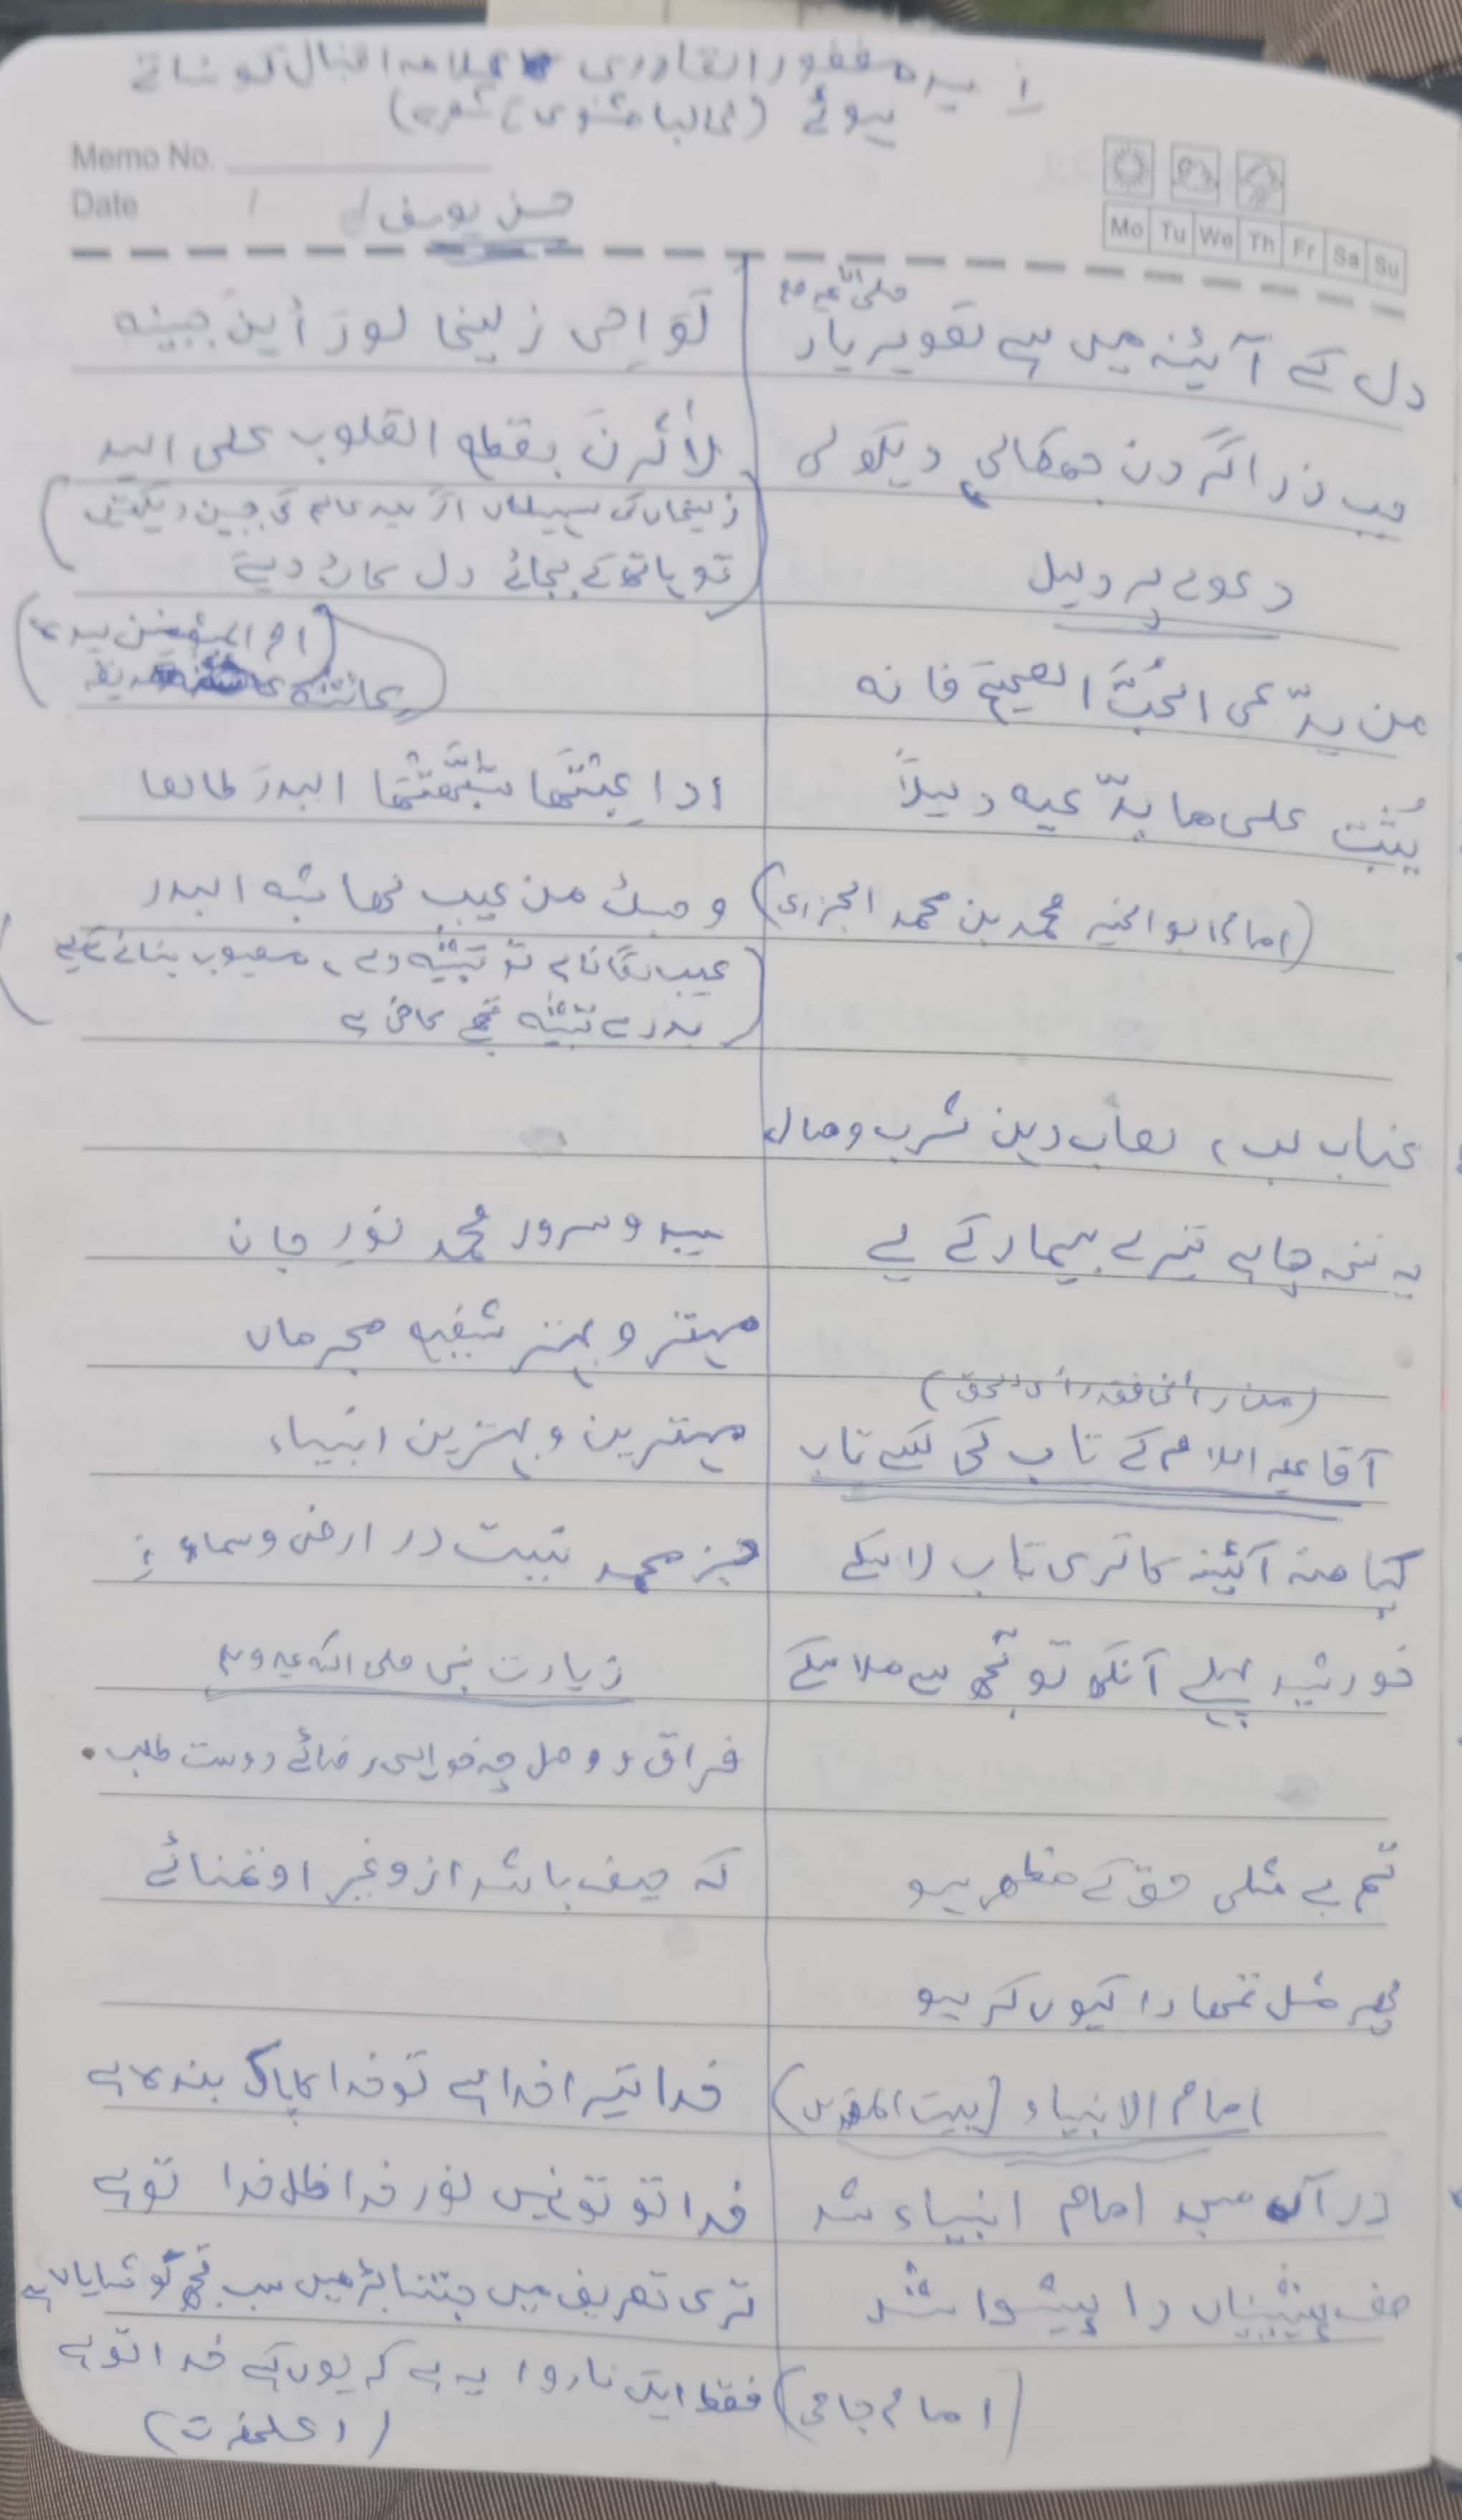 سید مغفور القادری علامہ اقبال کو سناتے
ہوئے (غالبا مثنوی شعر)
Memo No.
Date / /
Mo Tu We Th Fr Sa Su
حسن یوسف
دل کے آئینہ میں ہے تصویر یار
جب ذرا گردن جھکالی دیکھ لی
دعوے پر دلیل
من یدّعی الحُبَّ الصحیح فانه
یُثبت علی ما یدّعیه دلیلاً
(امام ابو الخیر محمد بن محمد الجزری)
عناب لب، لعاب دہن شربت وصال
یہ نسخہ چاہیے تیرے بیمار کے لیے
(من رأنی فقد رأی الحق)
آقا علیہ السلام کے تاب کی کسے تاب
کیا منہ آئینہ کا تری تاب لا سکے
خورشید پہلے آنکھ تو تجھ سے ملا سکے
تم بے مثلی حق کے مظہر ہو
پھر مثل تمھارا کیوں کر ہو
امام الانبیاء (بیت المقدس)
در آں مسجد امام انبیاء شد
صف پیشیناں را پیشوا شد
(امام جامی)
لَوَاحِی زلیخا لو رَأینَ جبینه
لأثرنَ بقطع القلوب علی الید
(زلیخاں کی سہیلیاں اگر سید عالم کی جبین دیکھتیں
تو ہاتھ کے بجائے دل کاٹ دیتے)
(ام المؤمنین سیدہ
عائشہ صدیقہ)
اذا عِبتَها شبّهتَها البدرَ طالعا
وحسبك من عیب لها شبه البدر
(عیب لگانا ہے تو تشبیہ دے، معیوب بنانے کیلیے
بدر سے تشبیہ ہی کافی ہے)
سید و سرور محمد نورِ جان
مہتر و بہتر شفیع مجرماں
مہترین و بہترین انبیاء
جز محمد نیست در ارض و سماء
زیارت نبی صلی اللہ علیہ وسلم
فراق و وصل چہ خواہی رضائے دوست طلب
کہ حیف باشد از و غیر او تمنائے
خدا تیرا خدا ہے تو خدا کا پاک بندہ ہے
خدا تو تو نہیں نور خدا ظل خدا تو ہے
تری تعریف میں جتنا بڑھیں سب تجھ کو شایاں ہے
فقط ایک ناروا یہ ہے کہ یوں کہیے خدا تو ہے
(اعلحضرت)